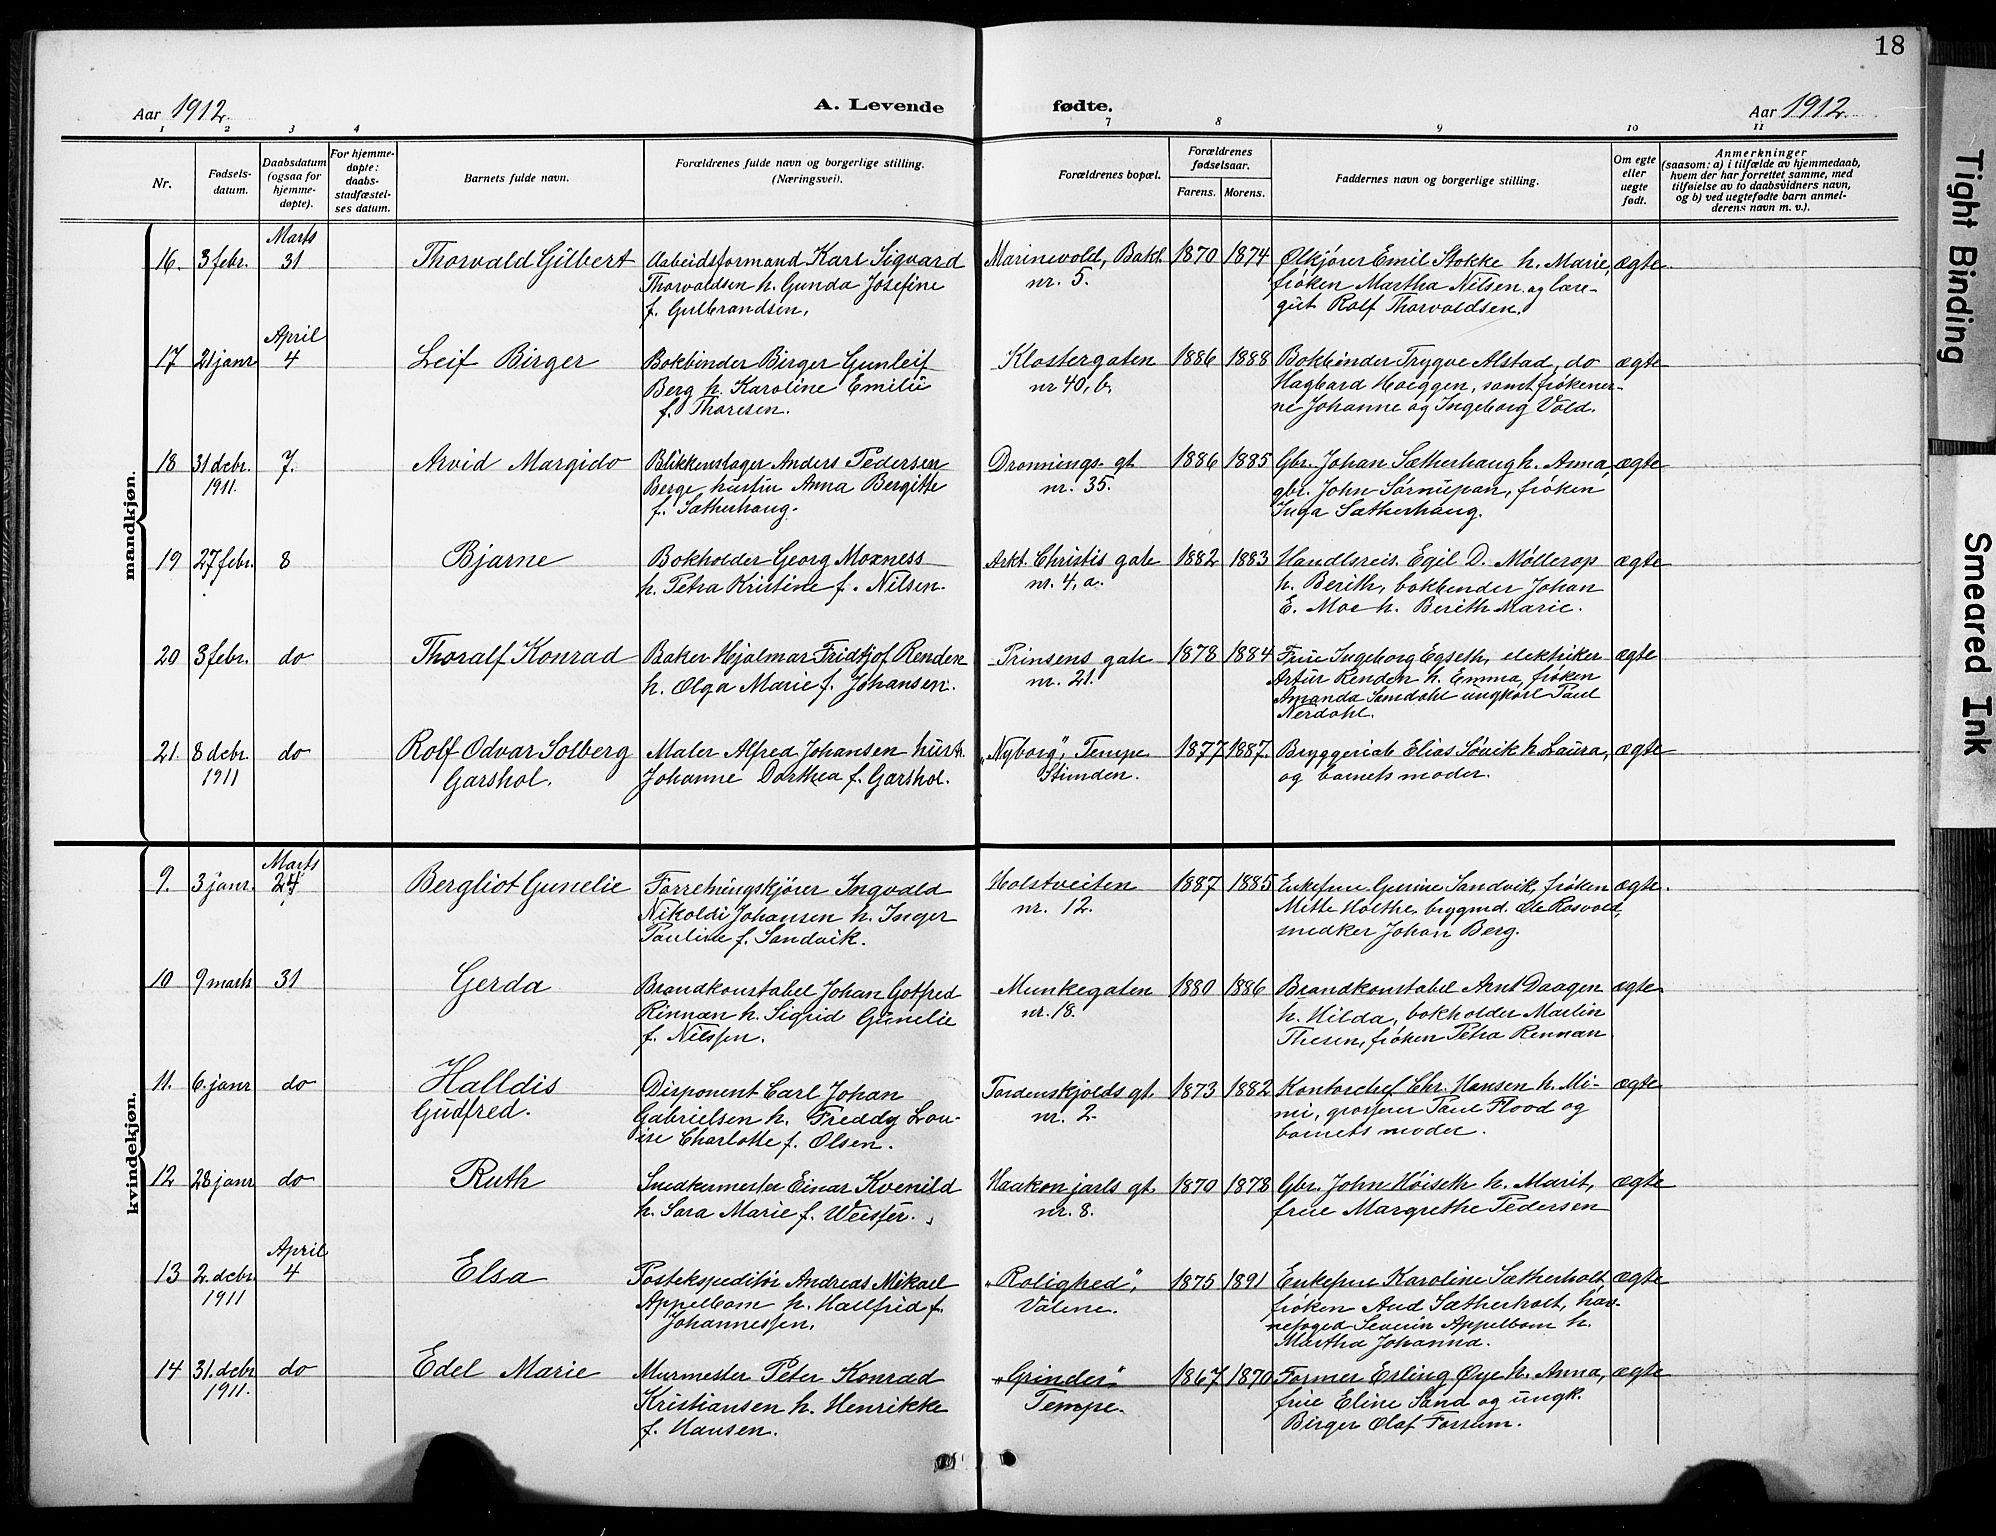 18
Aar 1912. A. Levende fødte. Aar 1912.
1 2 3 4 7 8 9 10 11
Nr. Fødsels-datum. Daabsdatum (ogsaa for hjemme-døpte). For hjemme-døpte: daabs-stadfæstel-ses datum. Barnets fulde navn. Forældrenes fulde navn og borgerlige stilling. (Næringsvei). Forældrenes bopæl. Forældrenes fødselsaar. Farens. Morens. Faddernes navn og borgerlige stilling. Om egte eller uegte født. Anmerkninger (saasom: a) i tilfælde av hjemmedaab, hvem der har forrettet samme, med tilføielse av to daabsvidners navn, og b) ved uegtefødte barn anmel-derens navn m. v.).
mandkjøn.
Marts
16. 3 febr. 31 Thorvald Gilbert Arbeidsformand Karl Sigvard Marinevold, Bakl. 1870 1874 Ølkjører Emil Stokke h. Marie, ægte
Thorvaldsen h. Gunda Josefine nr. 5. frøken Martha Nilsen og lære-
f. Gulbrandsen. gut Rolf Thorvaldsen.
April
17 21 janr 4 Leif Birger Bokbinder Birger Gunleif Klostergaten 1886 1888 Bokbinder Trygve Alstad, do ægte
Berg h. Karoline Emilie nr 40, b. Hagbard Hoeggen, samt frøkener-
f. Thoresen. ne Johanne og Ingeborg Vold.
18 31 debr. 7. Arvid Margido Blikkenslager Anders Pedersen Dronnings-gt 1886 1885 Gbr. Johan Sætherhaug h. Anna, ægte
1911. Berge, hustru Anna Bergitte nr. 35. gbr. John Sørnupan, frøken
f. Sætherhaug. Inga Sætherhaug.
19 27 febr. 8 Bjarne Bokholder Georg Moxness Arkt. Christis gate 1882 1883 Handlsreis. Egil D. Møllerop ægte
h. Petra Kristine f. Nilsen. nr. 4, a. h. Berith, bokbinder Johan
E. Moe h. Berith Marie.
20 3 febr. do Thoralf Konrad Baker Hjalmar Fridtjof Renden Prinsens gate 1878 1884 Frue Ingeborg Egseth, elektriker ægte
h. Olga Marie f. Johansen. nr. 21. Artur Renden h. Emma, frøken
Amanda Samdahl ungkarl Paul
Nerdahl.
21. 8 debr. do Rolf Odvar Solberg Maler Alfred Johansen hustr. „Nyborg", Tempe 1877 1887. Bryggeriab Elias Søvik h. Laura, ægte
1911 Garshol. Johanne Dorthea f. Garshol. Strinden. og barnets moder.
kvindekjøn.
Marts
9. 3 janr. 24 Bergliot Gunelie Forretningskjører Ingvald Holstveiten 1887 1885 Enkefrue Gurine Sandvik, frøken ægte.
Nikolai Johansen h. Inger nr. 12. Mitte Holthe, brygmd. Ole Rosvold,
Pauline f. Sandvik. snedker Johan Berg.
10 9 marts 31 Gerda Brandkonstabel Johan Gotfred Munkegaten 1880 1886 Brandkonstabel Arnt Daagen ægte
Rinnan h. Sigrid Gunelie nr. 18. h. Hilda, bokholder Martin
f. Nilssen. Thesen, frøken Petra Rennan
11. 6. janr do Halldis Disponent Carl Johan Tordenskjolds gt. 1873 1882 Kontorchef Chr. Hansen h. Mi- ægte
Gudfred. Gabrielsen h. Freddy Lou- nr. 2. mi, grosserer Paul Flood og
ise Charlotte f. Olsen. barnets moder.
12 28 janr do Ruth Snedkermester Einar Kvenild Haakon jarls gt. 1870 1878 Gbr. John Høiseth h. Marit, ægte
h. Sara Marie f. Weiser. nr. 8. frue Margrethe Pedersen
April
13 2. debr. 4 Elsa Postekspeditør Andreas Mikael „Rolighed", 1875 1891 Enkefrue Karoline Sætherholt ægte
1911 Appelbom h. Hallfrid f. Valene. frøken Aud Sætherholt, hav-
Johannessen. nefoged Severin Appelbom h.
Martha Johanna.
14 31. debr do Edel Marie Murmester Peter Konrad „Grinder" 1867 1870 Former Erling Øye h. Anna, ægte
1911. Kristiansen h. Henrikke Tempe. frue Eline Sand og ungk.
f. Hansen. Birger Olaf Forsum.
Tight Binding
Smeared Ink